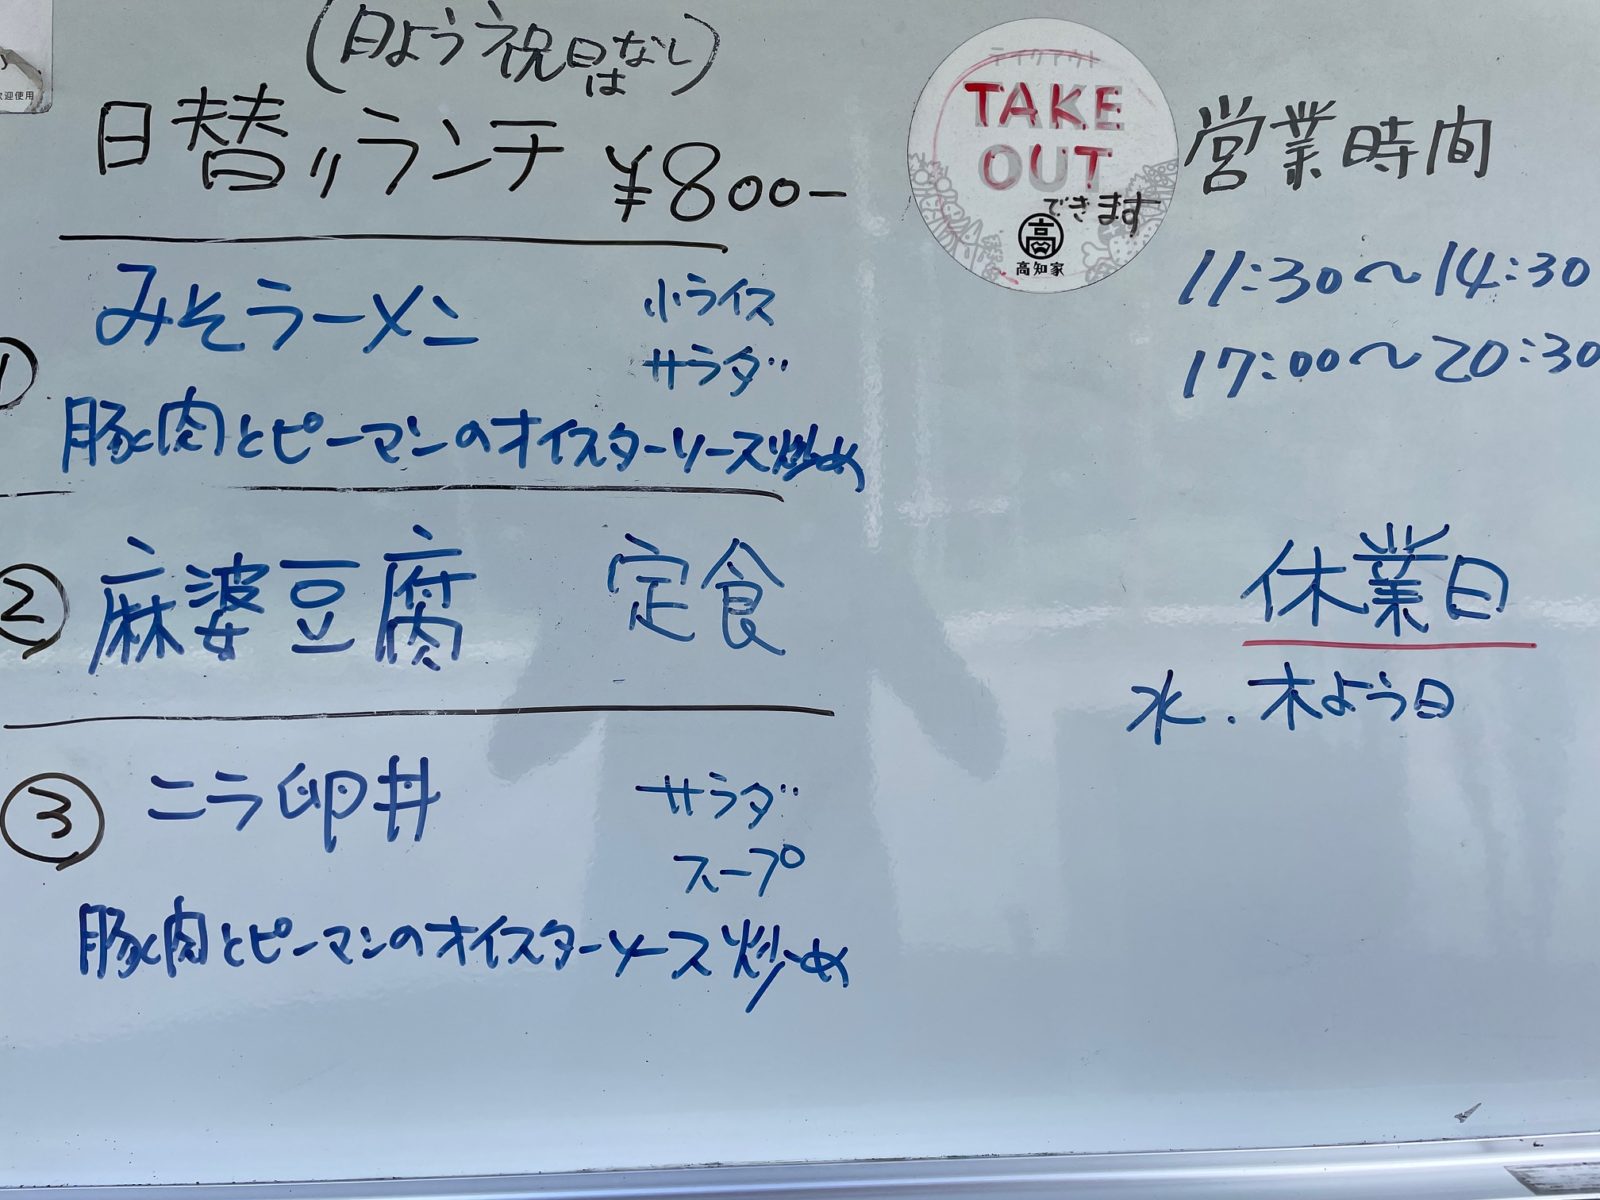 (日よう祝日はなし)
日替りランチ ¥800-
① みそラーメン 小ライス
サラダ
豚肉とピーマンのオイスターソース炒め
② 麻婆豆腐 定食
③ ニラ卵丼 サラダ
スープ
豚肉とピーマンのオイスターソース炒め
テイクアウト
TAKE
OUT
できます
高知家
営業時間
11:30〜14:30
17:00〜20:30
休業日
水.木よう日
迎使用